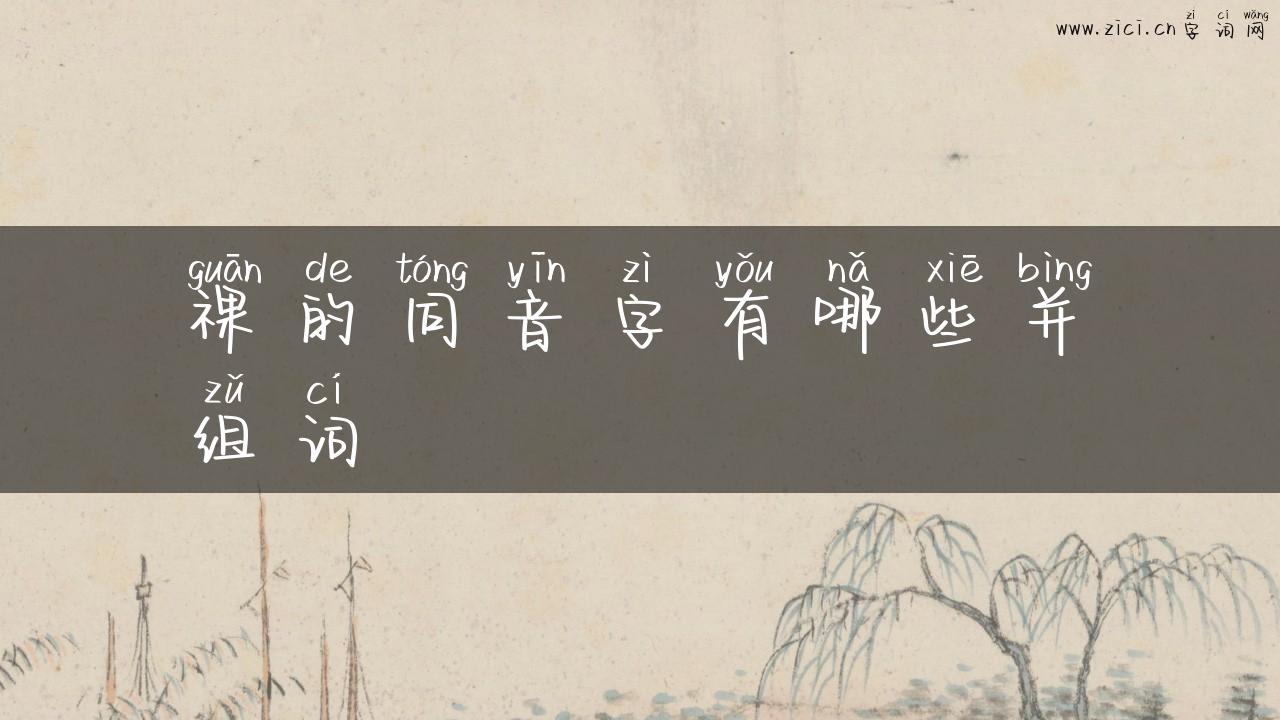 zì cí wǎng
www.zici.cn 字 词 网
guān de tóng yīn zì yǒu nǎ xiē bìng
祼 的 同 音 字 有 哪 些 并
zǔ cí
组 词